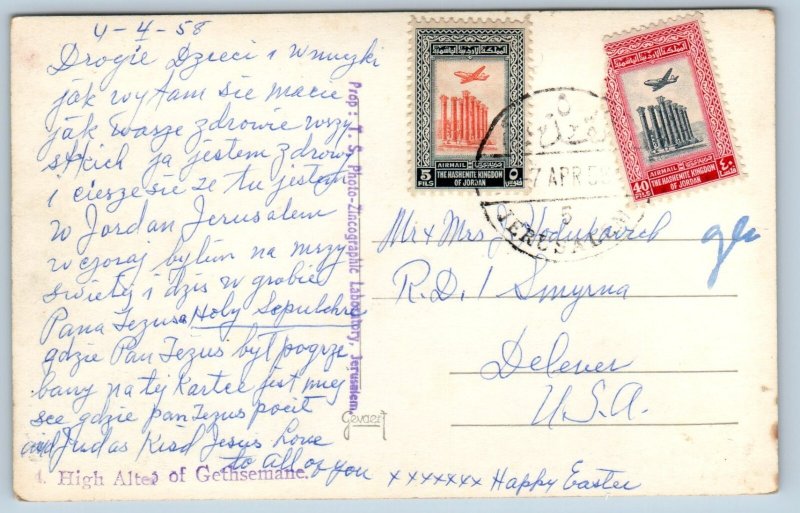 4-4-58
Drogie Dzieci i wnuczki
jak wy tam sie macie
jak wasze zdrowie wszy
stkich ja jestem zdrowy
i ciesze sie ze tu jestem
w Jordan Jerusalem
wczoraj bylim na mszy
swietej i dzis w grobie
Pana Jezusa Holy Sepulchre
gdzie Pan Jezus byt pogrze
bany na tej Kartce jest miej
sce gdzie pan Jezus pocit
and Judas Kisd Jesus Love
to all of you xxxxxxx Happy Easter
4. High Alter of Gethsemane.
Prop: T. S. Photo-Zincographic Laboratory, Jerusalem.
Gevaert
المملكة الأردنية الهاشمية
AIRMAIL
5 FILS
THE HASHEMITE KINGDOM
OF JORDAN
٥ فلوس
المملكة الأردنية الهاشمية
AIRMAIL
40 FILS
THE HASHEMITE KINGDOM
OF JORDAN
٤٠
٥
7 APR 58
5
JERUSALEM
Mr & Mrs J Abdukavich
R.D. 1 Smyrna
Delever
U.S.A.